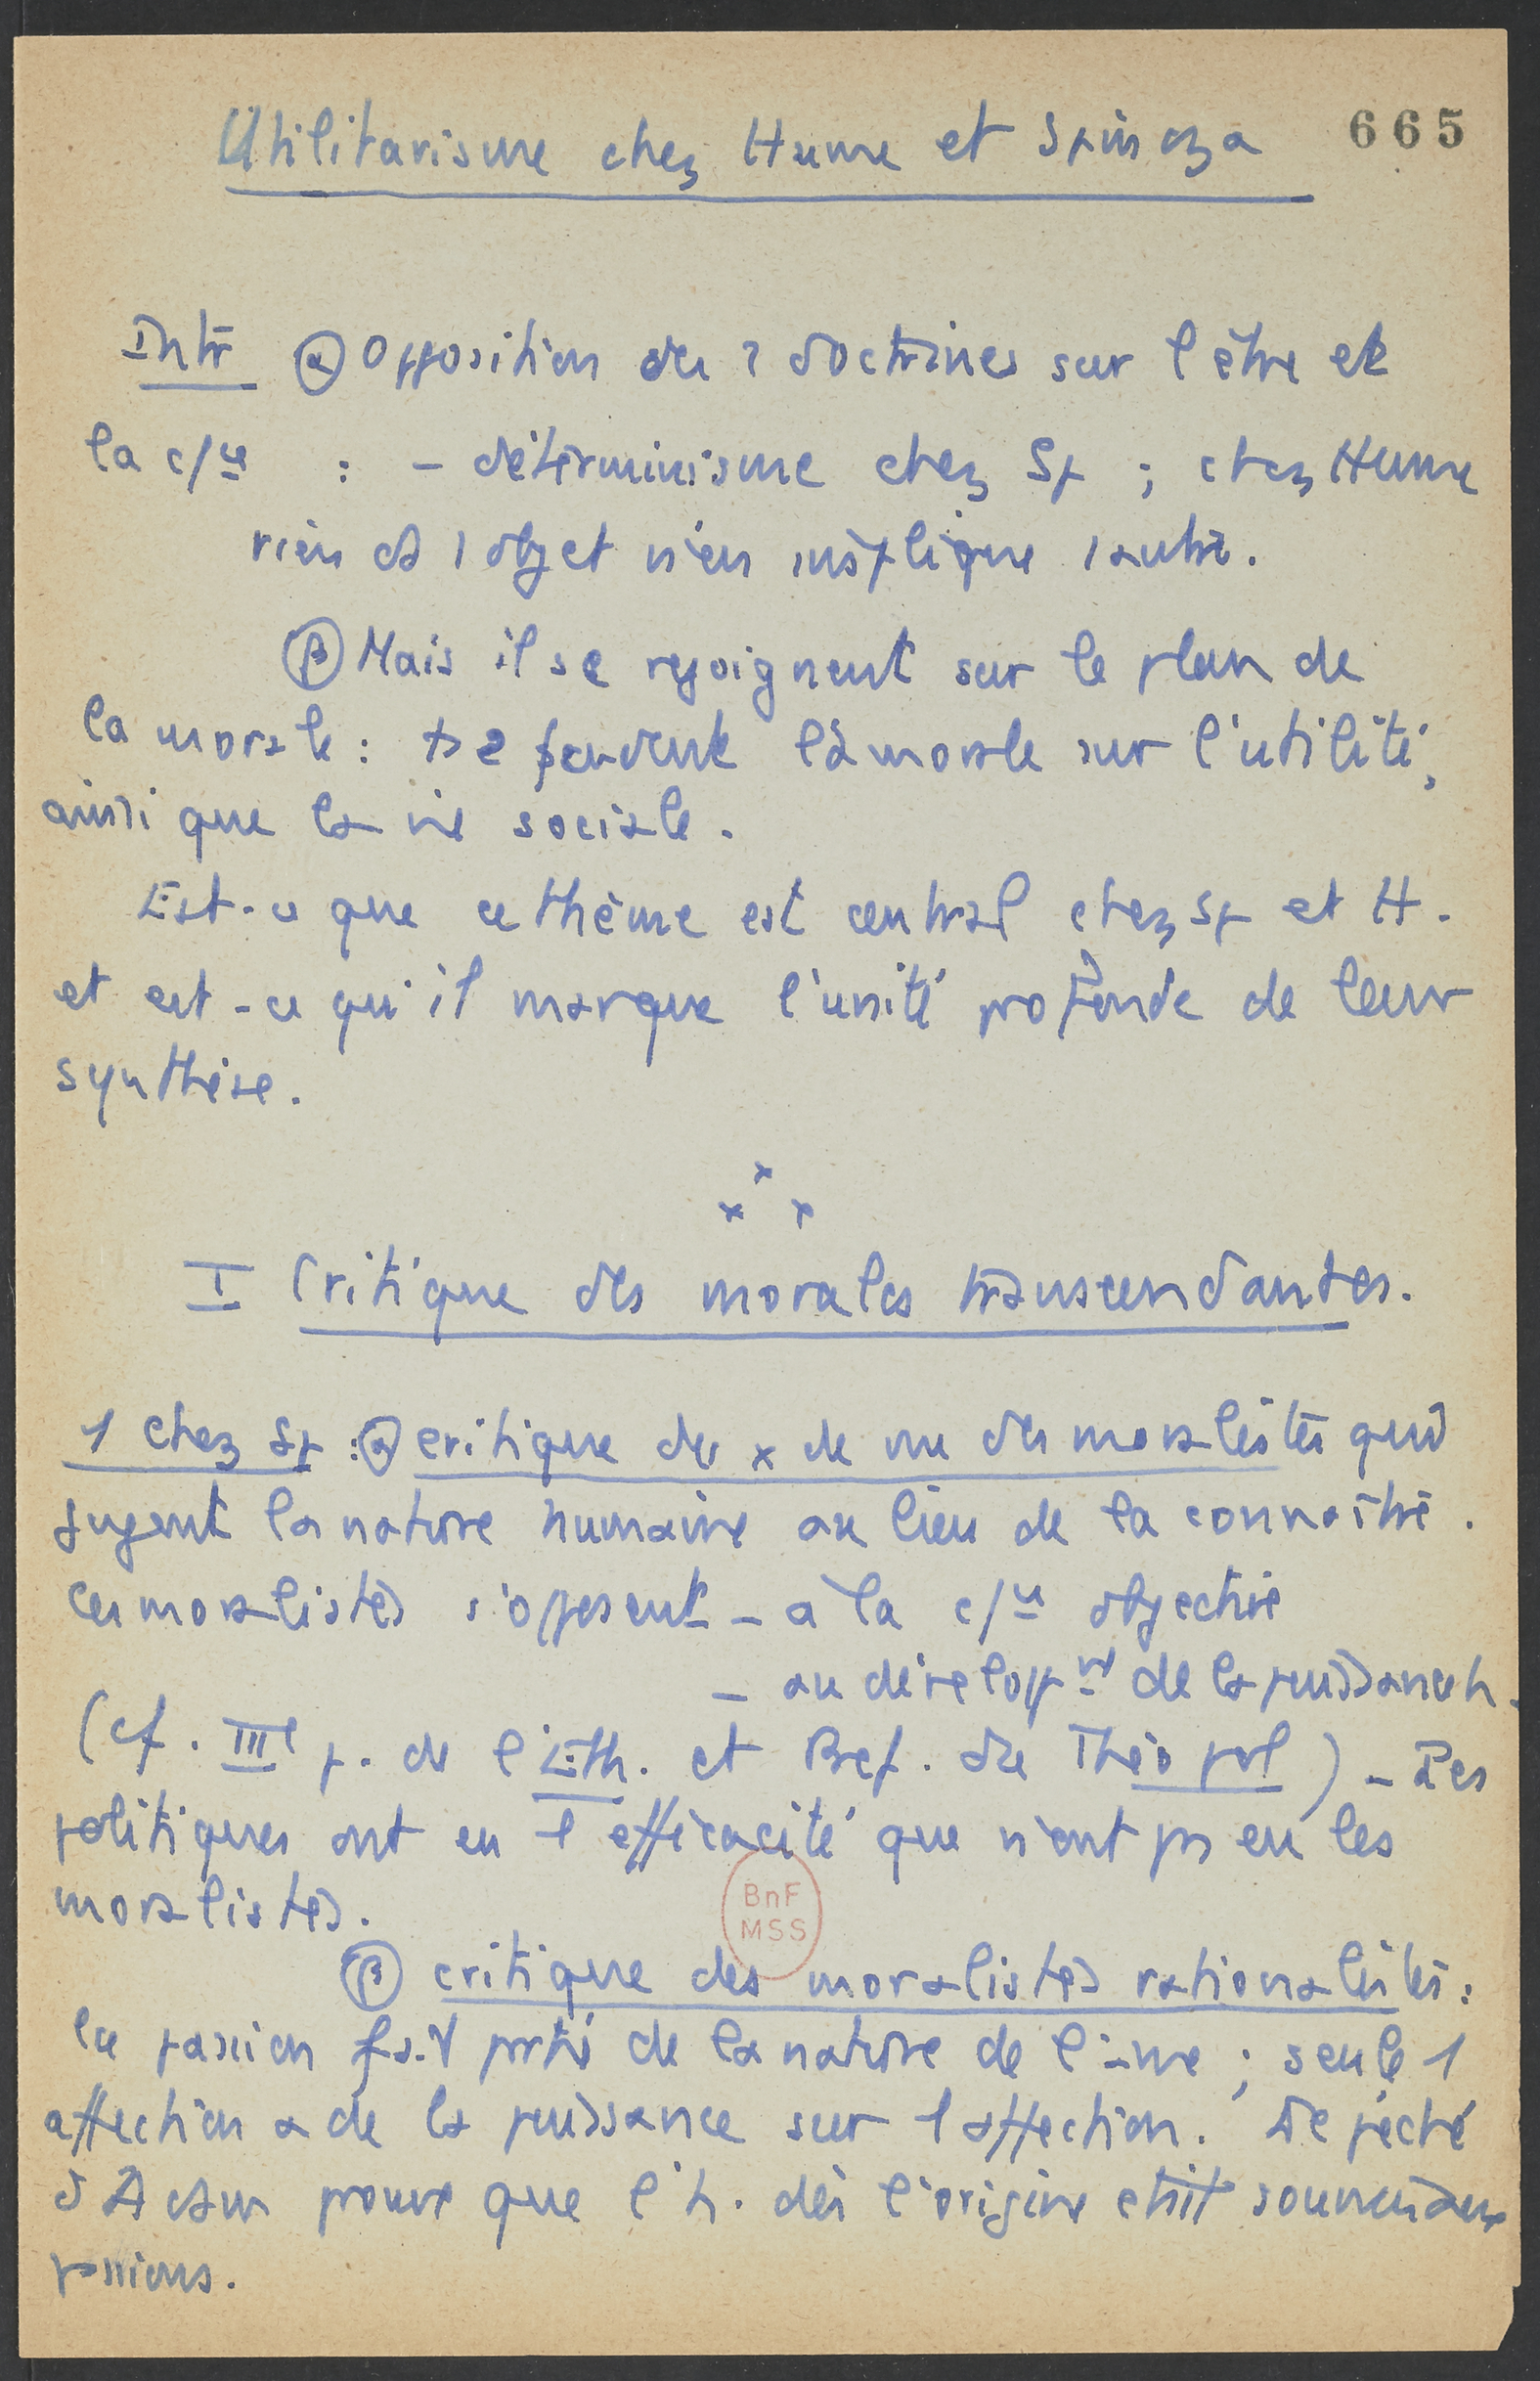 Utilitarisme chez Hume et Spinoza
665
Intr α Opposition des 2 doctrines sur l'être et
la c/ce : - déterminisme chez Sp ; chez Hume
rien ds 1 objet n'en implique 1 autre.
β Mais ils se rejoignent sur le plan de
la morale : ts 2 fondent la morale sur l'utilité,
ainsi que la vie sociale.
Est-ce que ce thème est central chez Sp et H.
et est-ce qu'il marque l'unité profonde de leur
synthèse.
x
x x
I Critique des morales transcendantes.
1 chez Sp : α critique des x de vue des moralistes qui
jugent la nature humaine au lieu de la connaître.
Ces moralistes s'opposent - à la c/ce objective
- au développt de la puissance h.
(cf. IIIe p. de l'Eth. et Pref. du Théo pol) - Les
politiques ont eu 1 efficacité que n'ont pas eu les
moralistes.
BnF
MSS
β critique des moralistes rationalistes :
la passion fait partie de la nature de l'âme ; seule 1
affection a de la puissance sur 1 affection. Le péché
d'Adam prouve que l'h. dès l'origine était soumis aux
passions.